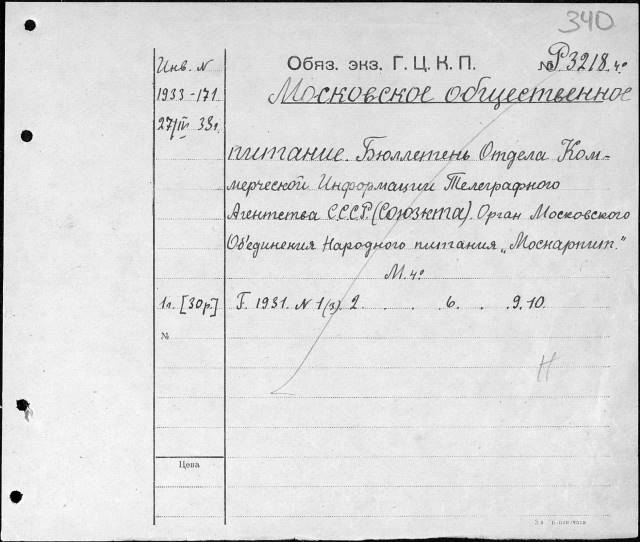 340
Инв. N Обяз. экз. Г. Ц. К. П. № Р3218. 4°
1933-171 Московское общественное
27/IV 33г.
питание. Бюллетень Отдела Ком-
мерческой Информации Телеграфного
Агентства С.С.С.Р. (Союзкта). Орган Московского
Объединения Народного питания „Москарпит."
М. 4°
1л. [30р.] F. 1931. N 1(3). 2 . . . 6 . . 9. 10.
№
Н
Цена